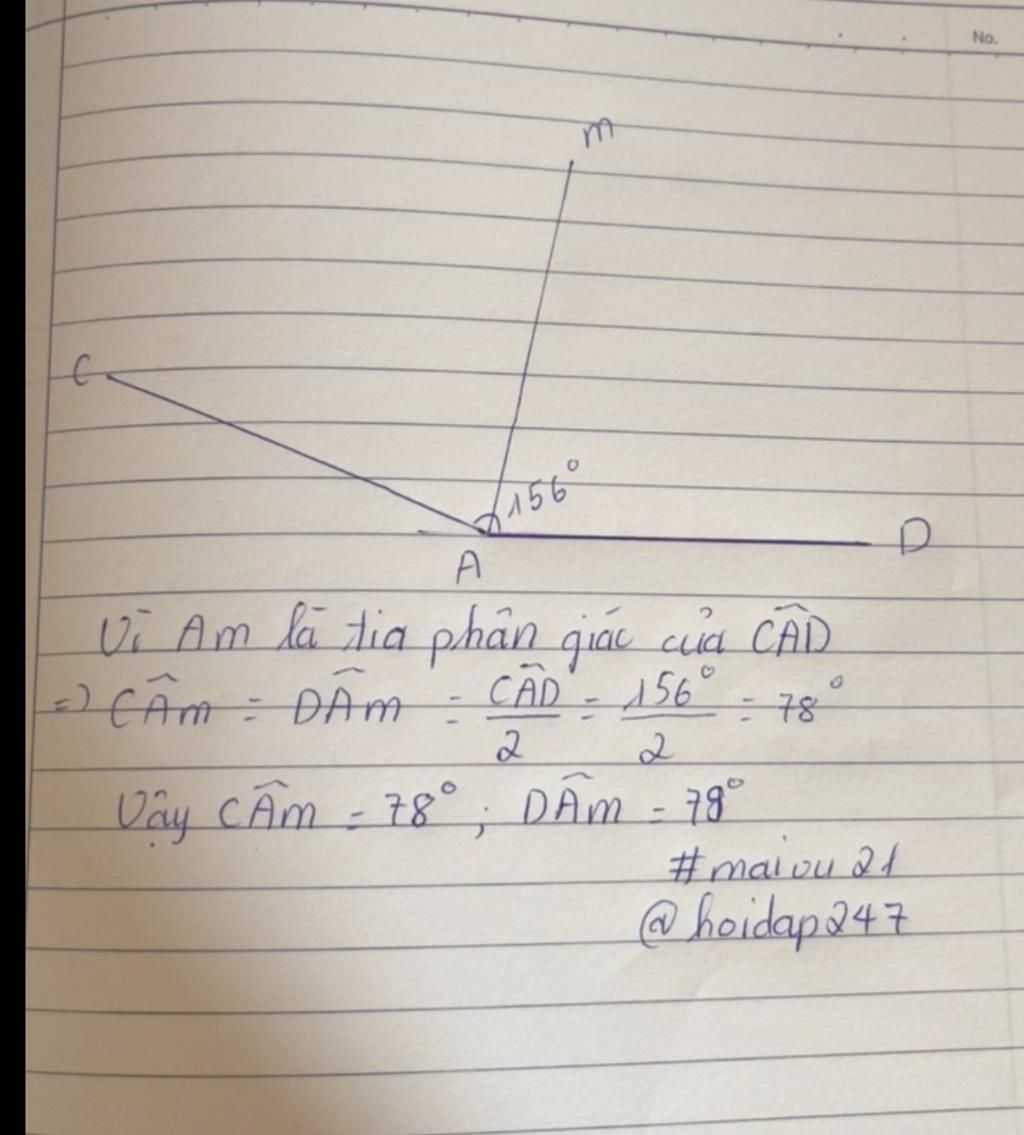 No.
m
C
156°
A
D
Vì Am là tia phân giác của CÂD
=) CÂm = DÂm = CÂD/2 = 156°/2 = 78°
Vậy CÂm = 78° ; DÂm = 78°
#maiou21
@hoidap247